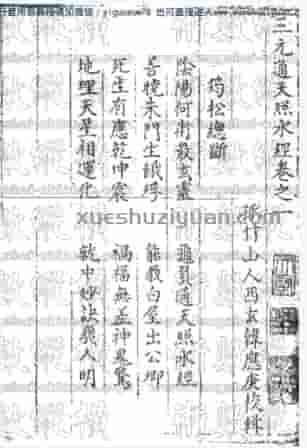 三元通天照水經卷之一
竹山人西玄應庚校輯
筠松總斷
陰陽何術最玄靈 龜負通天照水經
善撓朱門生餓殍 能教白屋出公卿
死生有應乾坤震 禍福無差神鬼驚
地理天星相運化 就中妙訣幾人明
xueshuziyuan.com